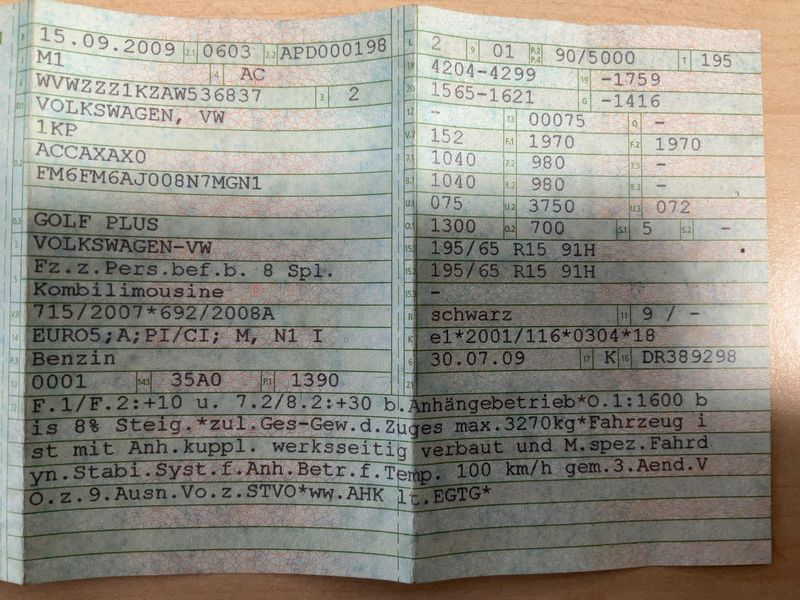 B 15.09.2009 2.1 0603 2.2 APD000198
J M1 4 AC
E WVWZZZ1KZAW536837 3 2
D.1 VOLKSWAGEN, VW
1KP
D.2 ACCAXAX0
FM6FM6AJ008N7MGN1
D.3 GOLF PLUS
2 VOLKSWAGEN-VW
5 Fz.z.Pers.bef.b. 8 Spl.
Kombilimousine
V.9 715/2007*692/2008A
14 EURO5;A;PI/CI; M, N1 I
P.3 Benzin
10 0001 14.1 35A0 P.1 1390
L 2 9 01 P.2 P.4 90/5000 T 195
18 4204-4299 19 -1759
20 1565-1621 G -1416
12 - 13 00075 Q -
V.7 152 F.1 1970 F.2 1970
7.1 1040 7.2 980 7.3 -
8.1 1040 8.2 980 8.3 -
U.1 075 U.2 3750 U.3 072
O.1 1300 O.2 700 S.1 5 S.2 -
15.1 195/65 R15 91H
15.2 195/65 R15 91H
15.3 -
R schwarz 11 9 / -
K e1*2001/116*0304*18
6 30.07.09 17 K 16 DR389298
21
22 F.1/F.2:+10 u. 7.2/8.2:+30 b.Anhängebetrieb*O.1:1600 b
is 8% Steig.*zul.Ges-Gew.d.Zuges max.3270kg*Fahrzeug i
st mit Anh.kuppl. werksseitig verbaut und M.spez.Fahrd
yn.Stabi.Syst.f.Anh.Betr.f.Temp. 100 km/h gem.3.Aend.V
O.z.9.Ausn.Vo.z.STVO*ww.AHK lt.EGTG*